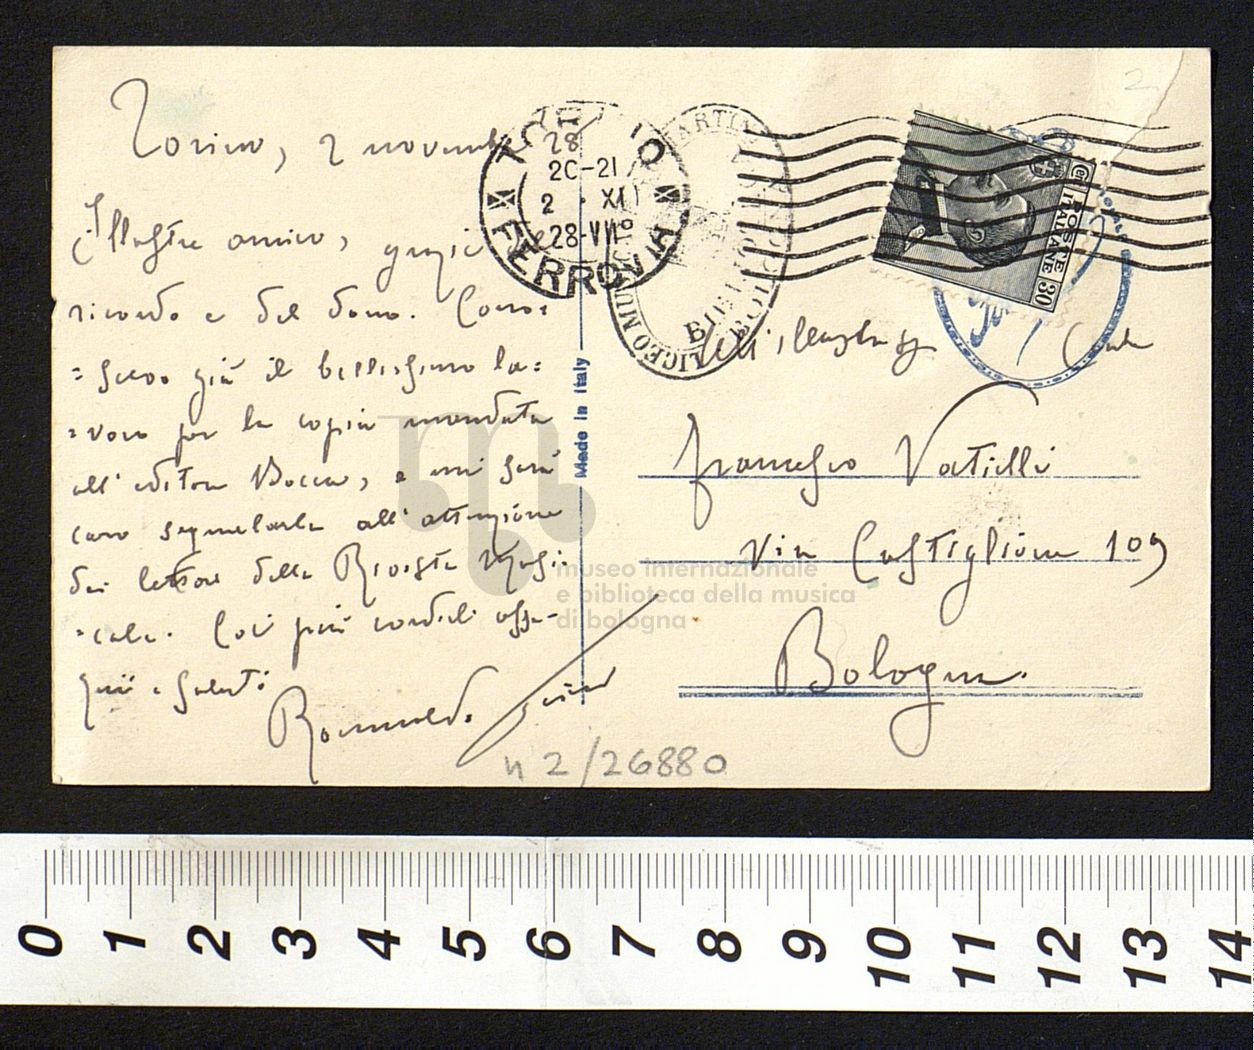 Torino, 2 novembre 28
Illustre amico, grazie del
ricordo e del dono. Cono=
=scevo già il bellissimo la=
=voro per la copia mandata
all'editore Bocca, e mi sarà
caro segnalarla all'attenzione
dei lettori della Rivista Musi=
=cale. Coi più cordiali osse-
qui e saluti
Romualdo Giani
TORINO
FERROVIA
20-21
2 · XI
28-VII°
LICEO MUSICALE
MARTINI
BIBLIOTECA
POSTE
ITALIANE
Cent
30
Made in Italy
Francesco Vatielli
Via Castiglione 109
Bologna.
museo internazionale
e biblioteca della musica
di bologna
n 2/26880
2
0 1 2 3 4 5 6 7 8 9 10 11 12 13 14